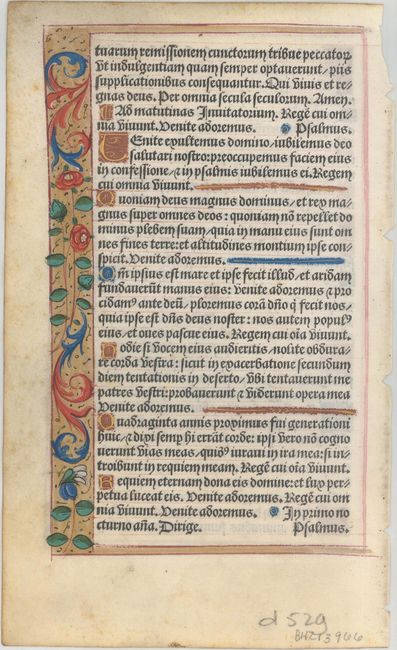 tuarum remissionem cunctorum tribue peccatoꝝ
vt indulgentiam quam semper optauerunt, piis
supplicationibus consequantur. Qui viuis et re-
gnas deus. Per omnia secula seculorum. Amen.
Ad matutinas Inuitatorium. Regē cui om
nia viuunt. Venite adoremus. Psalmus.
Uenite exultemus domino, iubilemus deo
salutari nostro: preoccupemus faciem eius
in confessione, ⁊ in psalmis iubilemus ei. Regem
cui omnia viuunt.
Quoniam deus magnus dominus, et rex ma-
gnus super omnes deos: quoniam nō repellet do
minus plebem suam, quia in manu eius sunt om
nes fines terre: et altitudines montium ipse con-
spicit. Venite adoremus.
Qm̄ ipsius est mare et ipse fecit illud, et aridam
fundauerūt manus eius: venite adoremus ⁊ pro
cidamꝰ ante deū, ploremus corā dn̄o q̄ fecit nos,
quia ipse est dn̄s deus noster: nos autem populꝰ
eius, et oues pascue eius. Regem cui oīa viuunt.
Hodie si vocem eius audieritis, nolite obdura-
re corda vestra: sicut in exacerbatione secundum
diem tentationis in deserto, vbi tentauerunt me
patres vestri: probauerunt ⁊ viderunt opera mea
Venite adoremus.
Quadraginta annis proximus fui generationi
huic, ⁊ dixi semp hi errāt corde: ipsi vero nō cogno
uerunt vias meas, quibꝰ iuraui in ira mea: si in-
troibunt in requiem meam. Regē cui oīa viuunt.
Requiem eternam dona eis domine: et lux per-
petua luceat eis. Venite adoremus. Regē cui om
nia viuunt. Venite adoremus. In primo no
cturno an̄a. Dirige. Psalmus.
d 529
BHZT3966